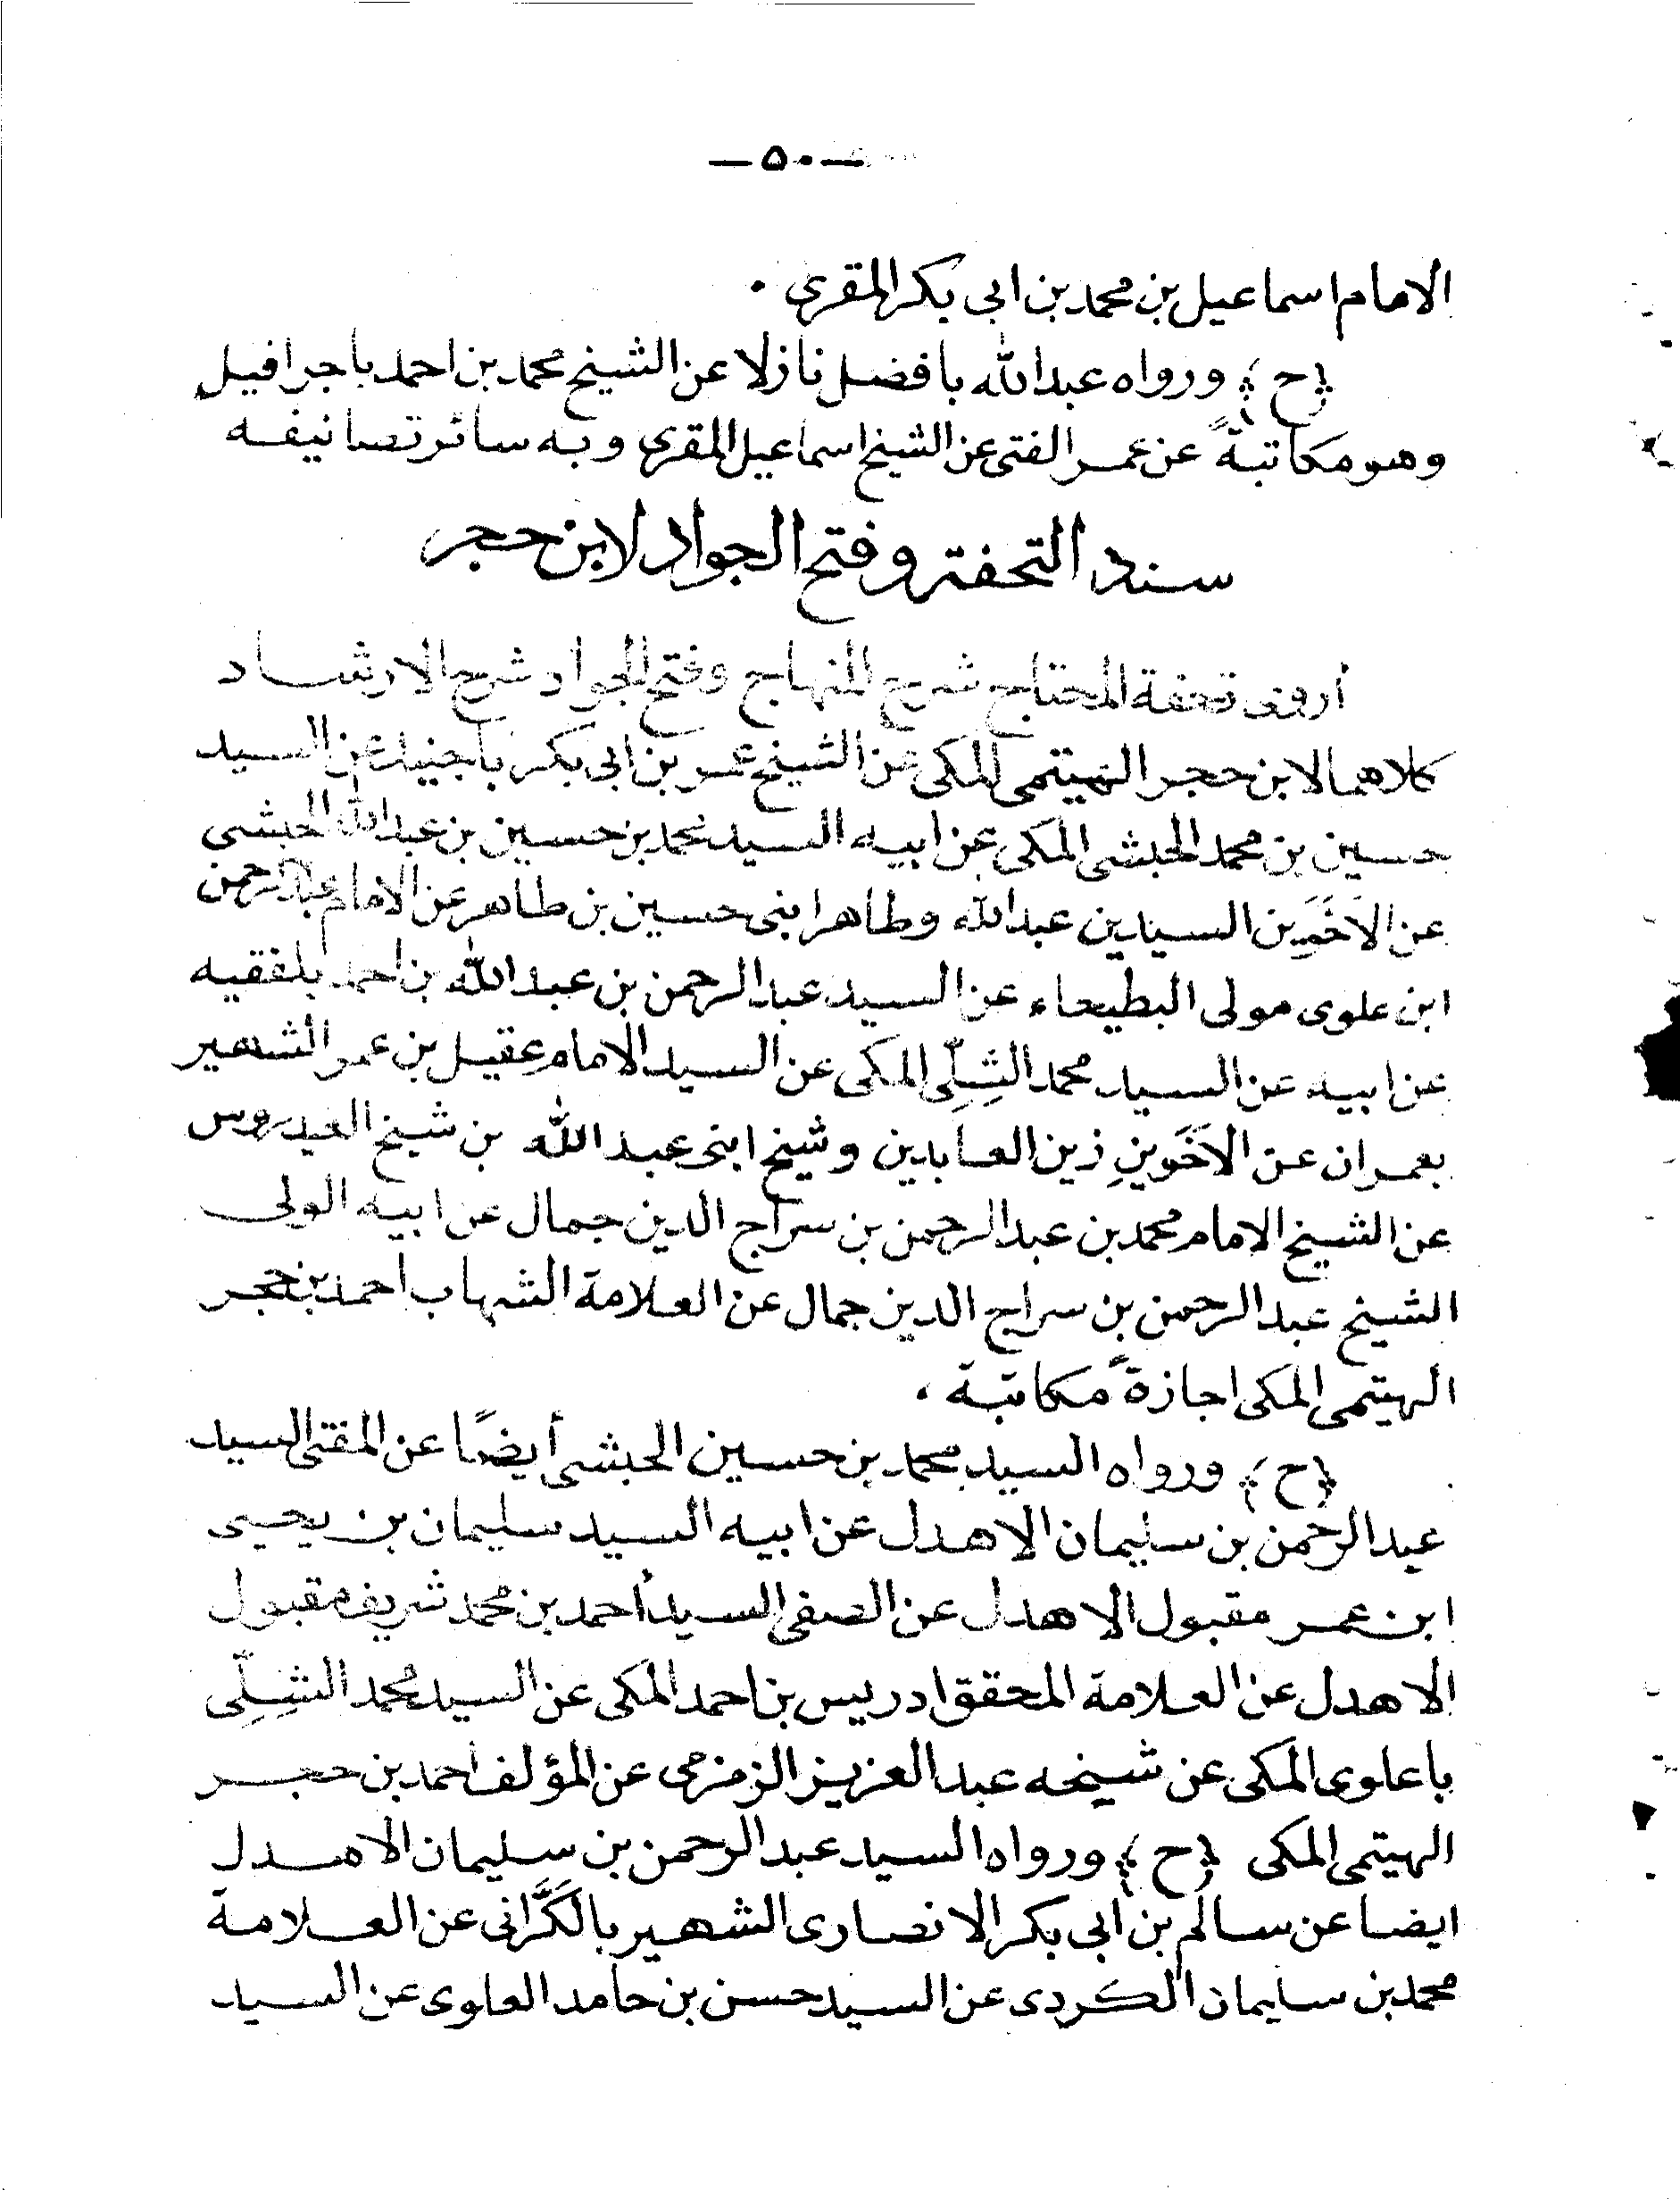 — ٥٠ —
الامام اسماعيل بن محمد بن ابى بكر المقرى .
﴿ح﴾ ورواه عبدالله بافضل نازلا عن الشيخ محمد بن احمد باجرافيل
وهو مكاتبةً عن عمر الفتى عن الشيخ اسماعيل المقرى وبه سائر تصانيفه
سند التحفة وفتح الجواد لابن حجر
أروى تحفة المحتاج شرح المنهاج وفتح الجواد شرح الارشاد
كلاهما لابن حجر الهيتمى المكى عن الشيخ عمر بن ابى بكر باجنيد عن السيد
حسين بن محمد الحبشى المكى عن ابيه السيد محمد بن حسين بن عبدالله الحبشى
عن الاَخَوَين السيدين عبدالله وطاهر ابنى حسين بن طاهر عن الامام عبدالرحمن
ابن علوى مولى البطيحاء عن السيد عبدالرحمن بن عبدالله بن احمد بلفقيه
عن ابيه عن السيد محمد الشِلِّى المكى عن السيد الامام عقيل بن عمر الشهير
بعمران عن الاَخَوَينِ زين العابدين وشيخ ابنى عبدالله بن شيخ العيدروس
عن الشيخ الامام محمد بن عبدالرحمن بن سراج الدين جمال عن ابيه الولى
الشيخ عبدالرحمن بن سراج الدين جمال عن العلامة الشهاب احمد بن حجر
الهيتمى المكى اجازةً مكاتبة .
﴿ح﴾ ورواه السيد محمد بن حسين الحبشى أيضًا عن المفتى السيد
عبدالرحمن بن سليمان الاهدل عن ابيه السيد سليمان بن يحيى
ابن عمر مقبول الاهدل عن الصفى السيد أحمد بن محمد شريف مقبول
الاهدل عن العلامة المحقق ادريس بن احمد المكى عن السيد محمد الشِلِّى
باعلوى المكى عن شيخه عبدالعزيز الزمزمى عن المؤلف احمد بن حجر
الهيتمى المكى ﴿ح﴾ ورواه السيد عبدالرحمن بن سليمان الاهدل
ايضا عن سالم بن ابى بكر الانصارى الشهير بالكَرَّانى عن العلامة
محمد بن سليمان الكردى عن السيد حسن بن حامد العلوى عن السيد